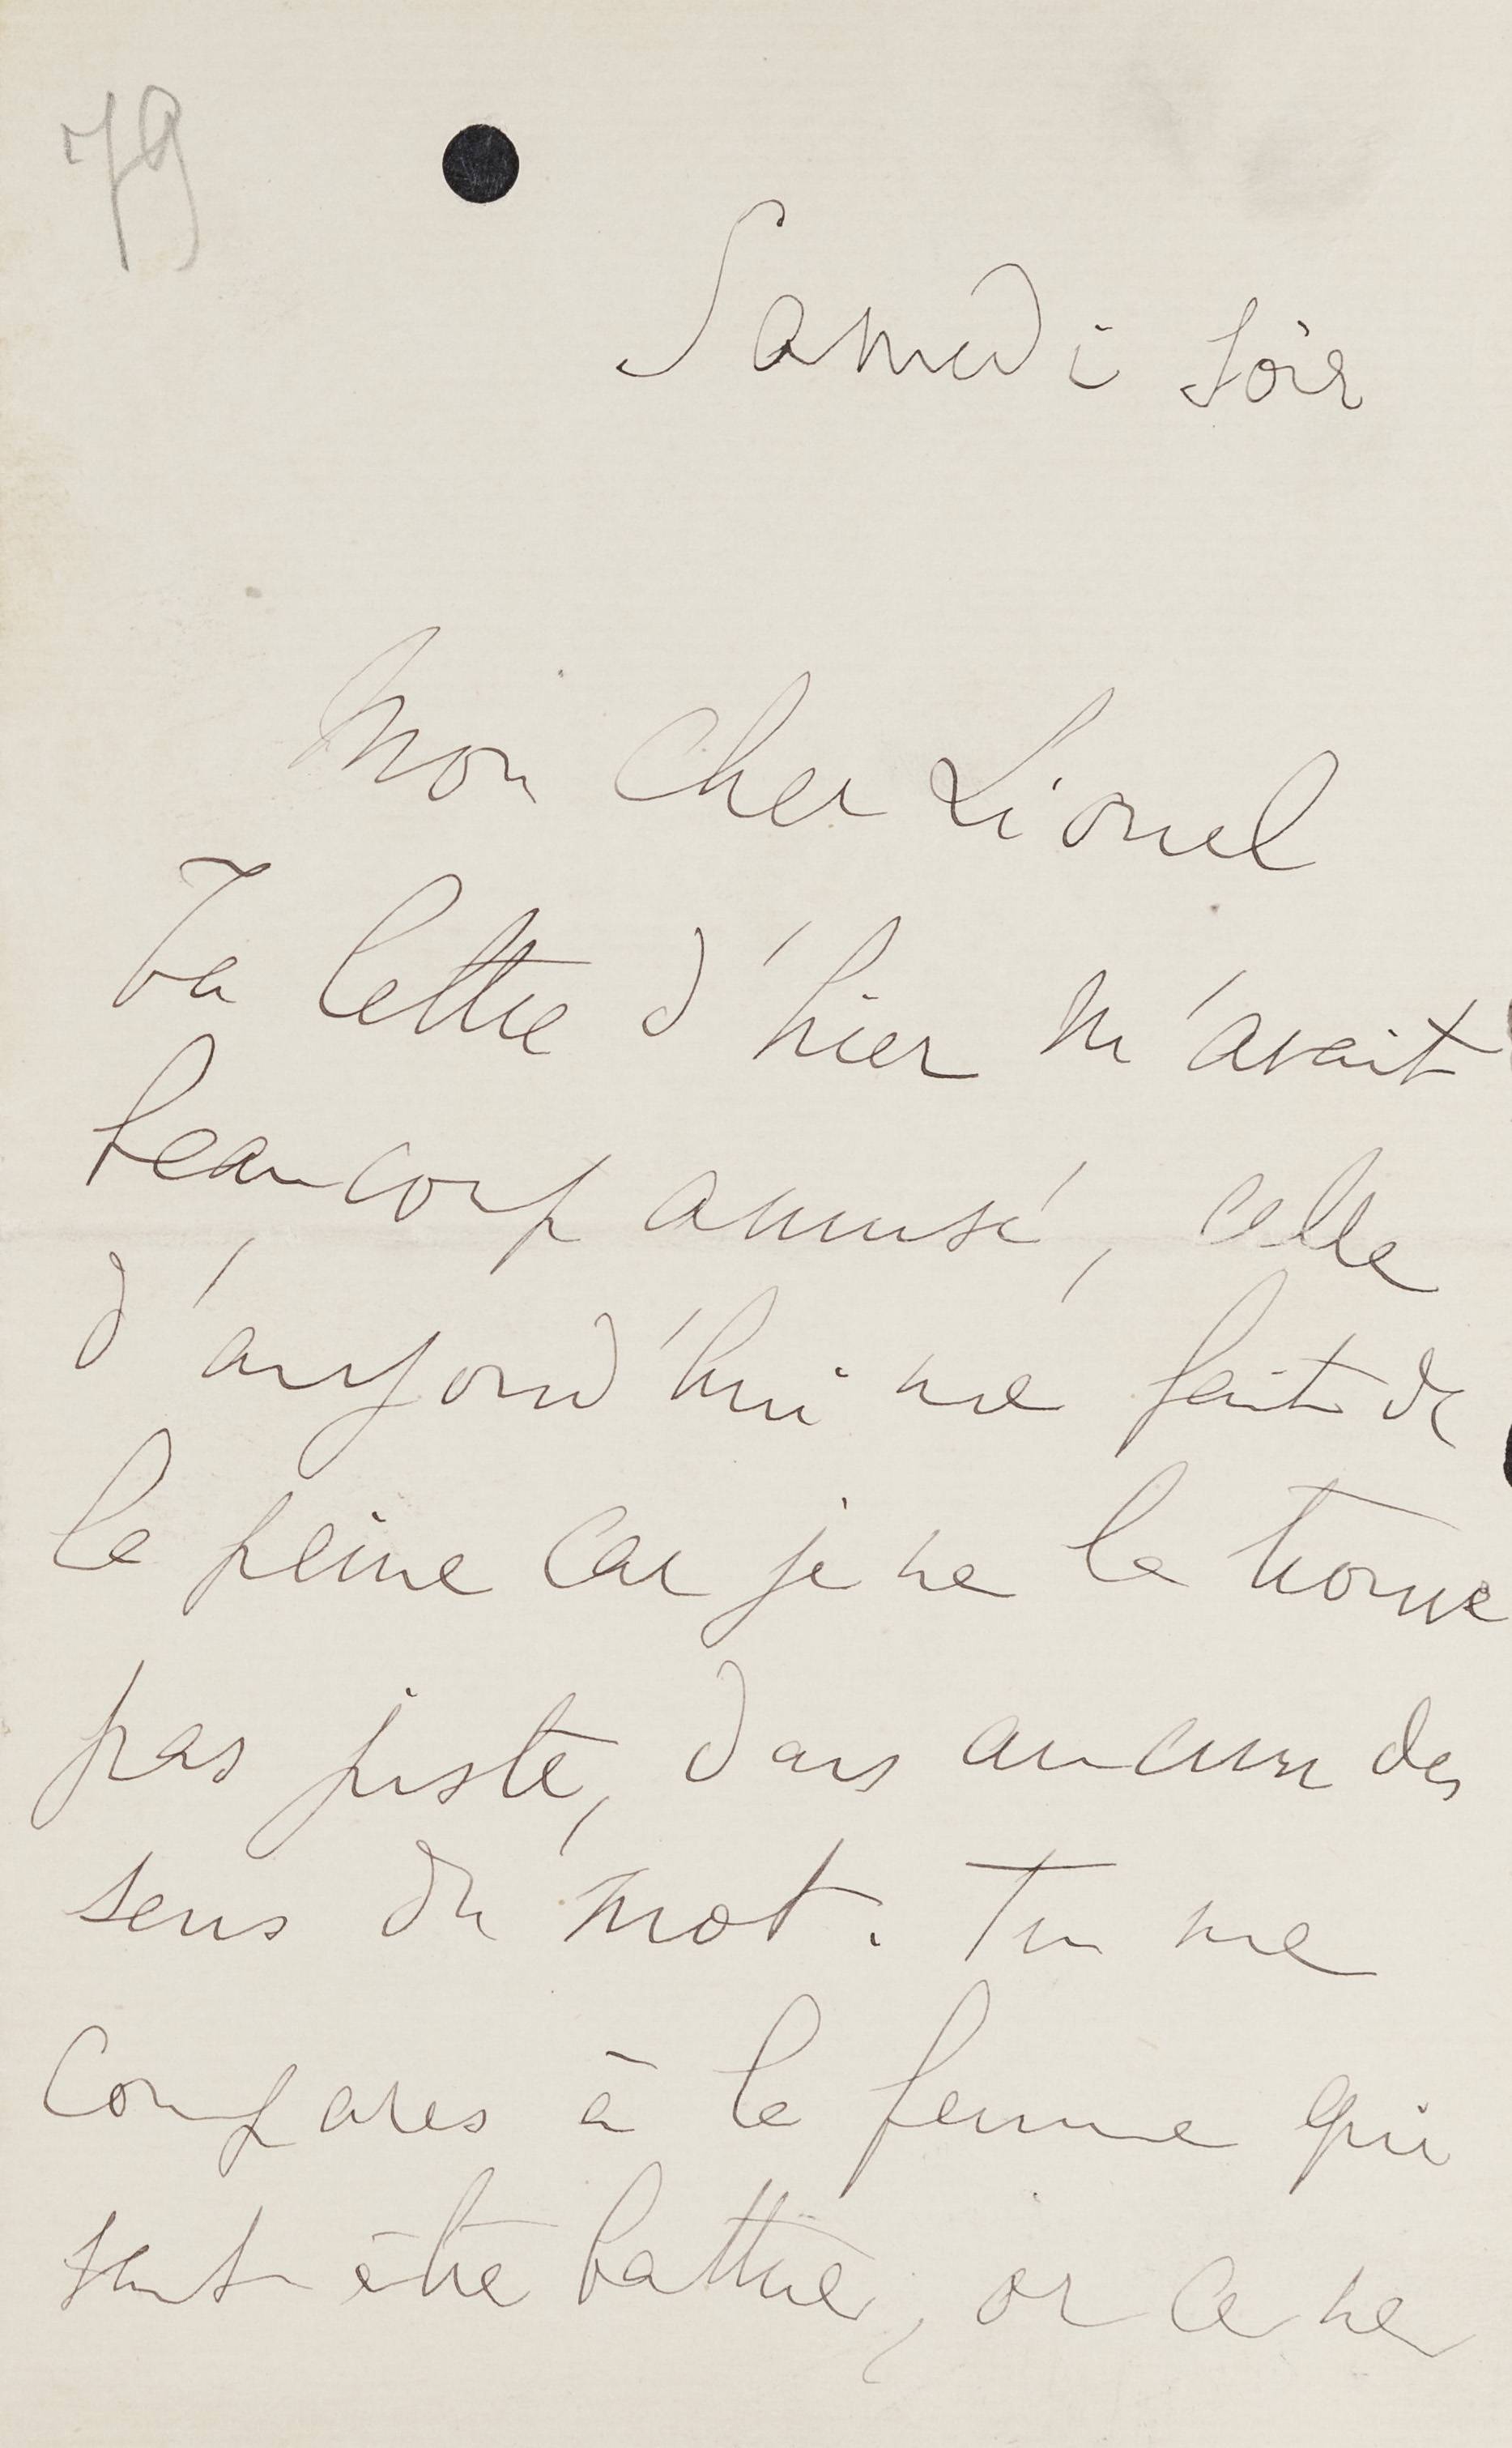 79
Samedi soir
Mon cher Lionel
Ta lettre d'hier m'avait
beaucoup amusé, celle
d'aujourd'hui me fait de
la peine car je ne la trouve
pas juste, dans aucun des
sens du mot. Tu me
compares à la femme qui
veut être battue, or ce ne